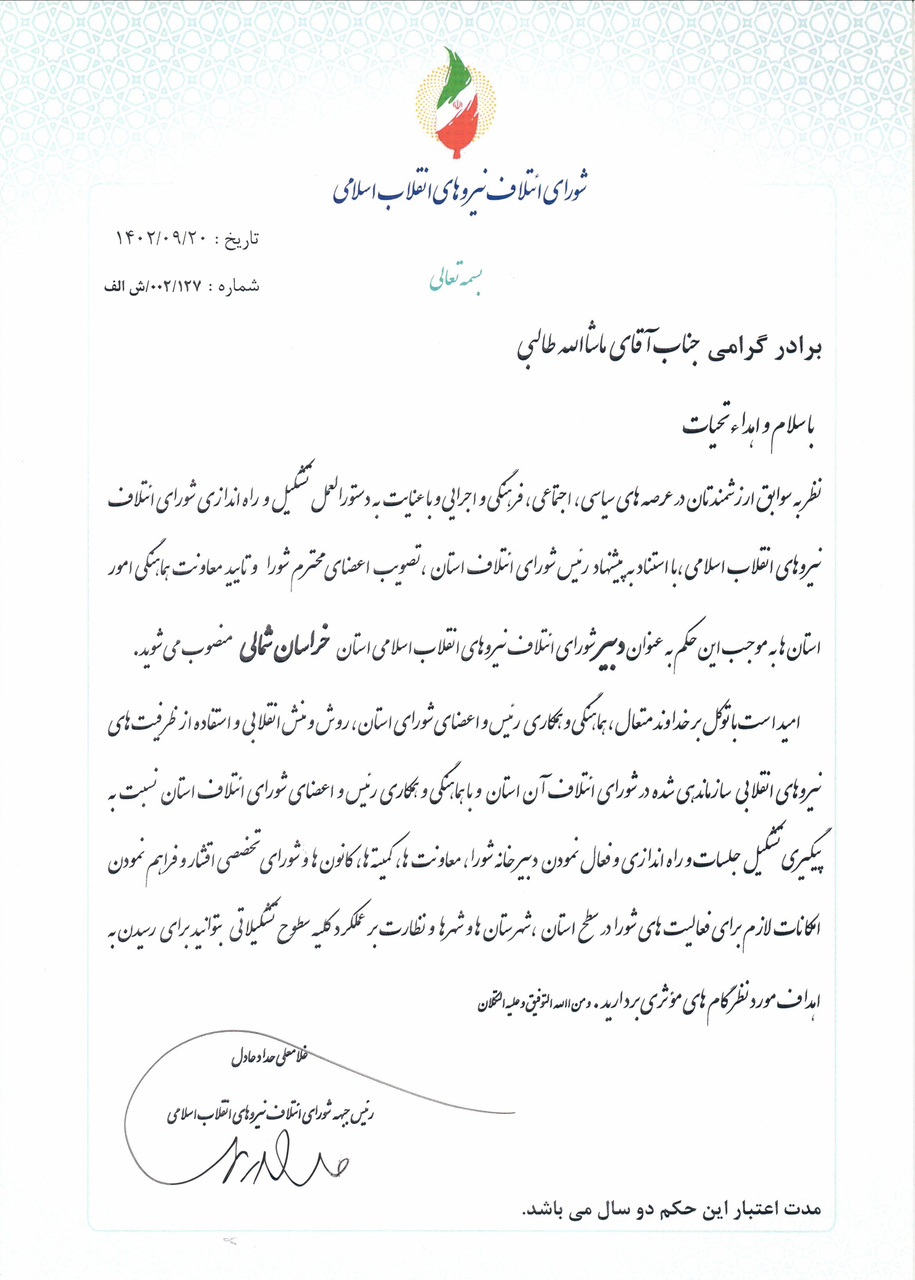 شورای ائتلاف نیروهای انقلاب اسلامی
تاریخ : ۱۴۰۲/۰۹/۲۰
بسمه تعالی
شماره : ۰۰۲/۱۲۷/ش الف
برادر گرامی جناب آقای ماشاالله طالبی
با سلام و اهداء تحیات
نظر به سوابق ارزشمندتان در عرصه های سیاسی، اجتماعی، فرهنگی و اجرایی و با عنایت به دستورالعمل تشکیل و راه اندازی شورای ائتلاف
نیروهای انقلاب اسلامی، با استناد به پیشنهاد رئیس شورای ائتلاف استان ، تصویب اعضای محترم شورا و تایید معاونت هماهنگی امور
استان ها به موجب این حکم به عنوان دبیر شورای ائتلاف نیروهای انقلاب اسلامی استان خراسان شمالی منصوب می شوید.
امید است با توکل بر خداوند متعال، هماهنگی و همکاری رئیس و اعضای شورای استان، روش و منش انقلابی و استفاده از ظرفیت های
نیروهای انقلابی سازماندهی شده در شورای ائتلاف آن استان و با هماهنگی و همکاری رئیس و اعضای شورای ائتلاف استان نسبت به
پیگیری تشکیل جلسات و راه اندازی و فعال نمودن دبیرخانه شورا، معاونت ها، کمیته ها، کانون ها و شورای تخصصی اقشار و فراهم نمودن
امکانات لازم برای فعالیت های شورا در سطح استان ، شهرستان ها و شهرها و نظارت بر عملکرد کلیه سطوح تشکیلاتی بتوانید برای رسیدن به
اهداف مورد نظر گام های مؤثری بردارید. ومن االله التوفیق و علیه التکلان
غلامعلی حداد عادل
رئیس جبهه شورای ائتلاف نیروهای انقلاب اسلامی
مدت اعتبار این حکم دو سال می باشد.